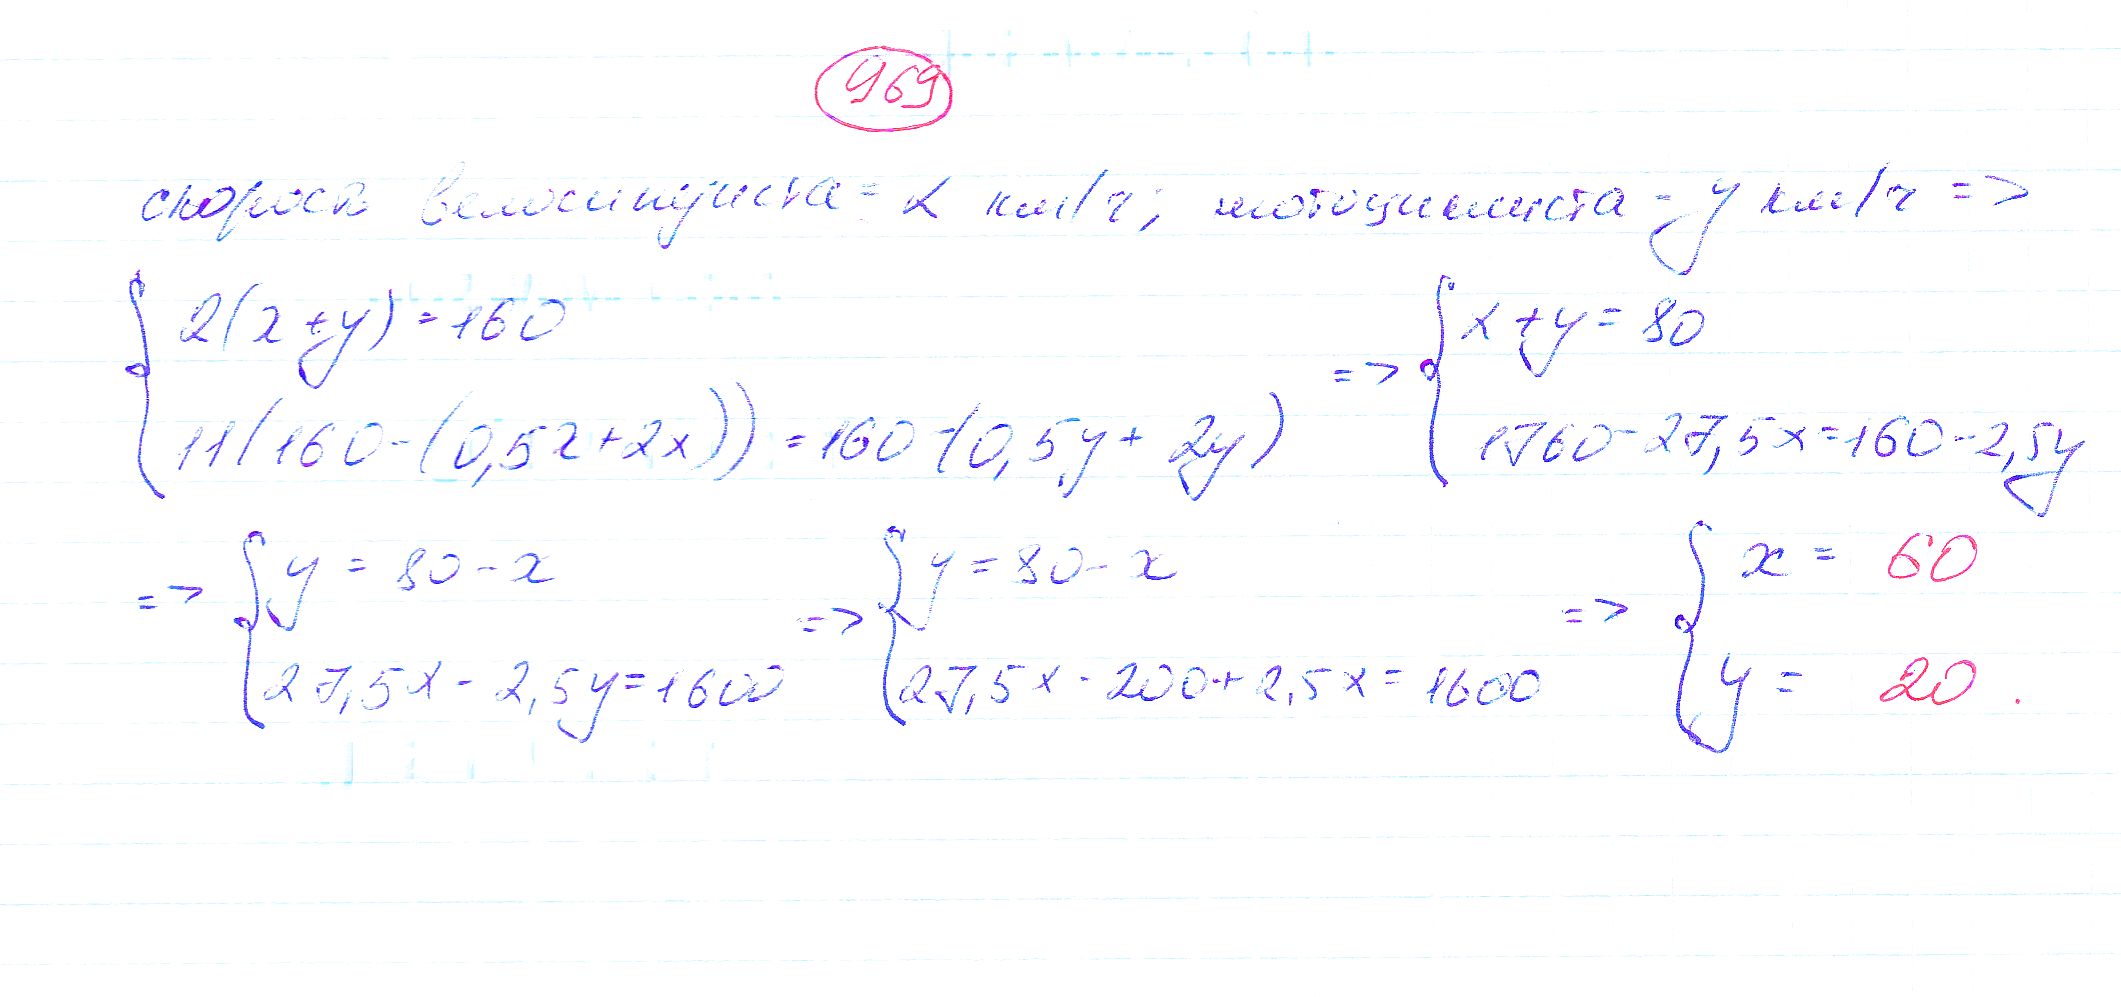 969
скорость велосипедиста = x км/ч; мотоциклиста - y км/ч =>
{ 2(x+y) = 160 => { x + y = 80
11(160-(0,5x+2x)) = 160-(0,5y+2y) 1760-27,5x=160-2,5y
=> { y = 80-x => { y = 80-x => { x = 60
27,5x - 2,5y=1600 27,5x-200+2,5x=1600 y = 20.